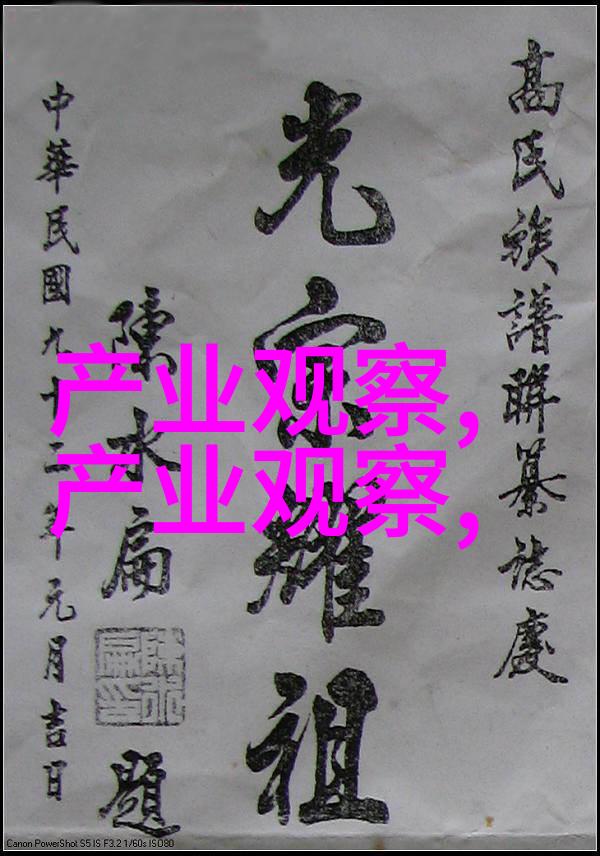 高氏族譜聯纂誌慶
光宗耀祖
陳水扁
陳水扁印
題
中華民國九十二年元月吉日
产业观察,
产业观察,
Canon PowerShot S5 IS F3.2 1/60s ISO80